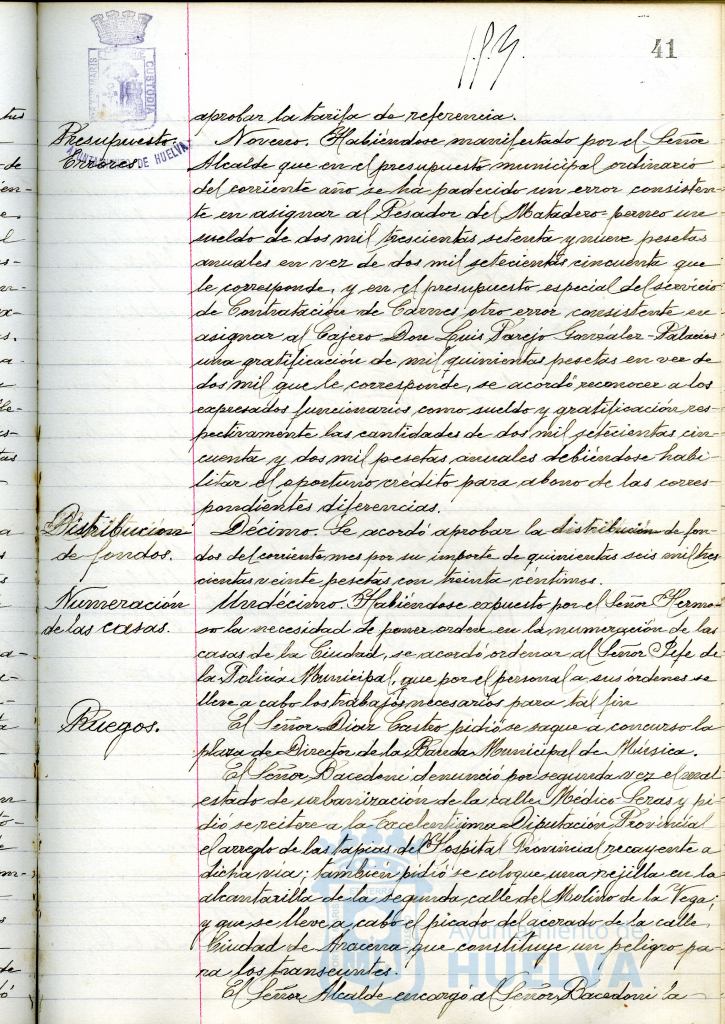 41
PORTUS MARIS
CUSTODIA
AYUNTAMIENTO DE HUELVA
aprobar la tarifa de referencia.
Presupuesto. Errores.
Noveno. Habiéndose manifestado por el Señor
Alcalde que en el presupuesto municipal ordinario
del corriente año se ha padecido un error consisten-
te en asignar al Pesador del Matadero perneo un
sueldo de dos mil trescientas setenta y nueve pesetas
anuales en vez de dos mil setecientas cincuenta que
le corresponde, y en el presupuesto especial del servicio
de Contratación de Carnes otro error consistente en
asignar al Cajero Don Luis Parejo González-Palacios
una gratificación de mil quinientas pesetas en vez de
dos mil que le corresponde, se acordó reconocer a los
expresados funcionarios como sueldo y gratificación res-
pectivamente las cantidades de dos mil setecientas cin-
cuenta y dos mil pesetas anuales debiéndose habi-
litar el oportuno crédito para abono de las corres-
pondientes diferencias.
Distribución de fondos.
Décimo. Se acordó aprobar la distribución de fon-
dos del corriente mes por su importe de quinientas seis mil tres-
cientas veinte pesetas con treinta céntimos.
Numeración de las casas.
Undécimo. Habiéndose expuesto por el Señor Hermo-
so la necesidad de poner orden en la numeración de las
casas de la Ciudad, se acordó ordenar al Señor Jefe de
la Policía Municipal, que por el personal a sus ordenes se
lleve a cabo los trabajos necesarios para tal fin
Ruegos.
El Señor Díaz Castro pidió se saque a concurso la
plaza de Director de la Banda Municipal de Música.
El Señor Bacedoni denunció por segunda vez el mal
estado de urbanización de la calle Médico Seras y pi-
dió se reitere a la Excelentísima Diputación Provincial
el arreglo de las tapias del Hospital Provincial recayente a
dicha vía; también pidió se coloque una rejilla en la
alcantarilla de la segunda calle del Molino de la Vega;
y que se lleve a cabo el picado del acerado de la calle
Ciudad de Aracena que constituye un peligro pa-
ra los transeuntes.
El Señor Alcalde encargó al Señor Bacedoni la
Ayuntamiento de
HUELVA